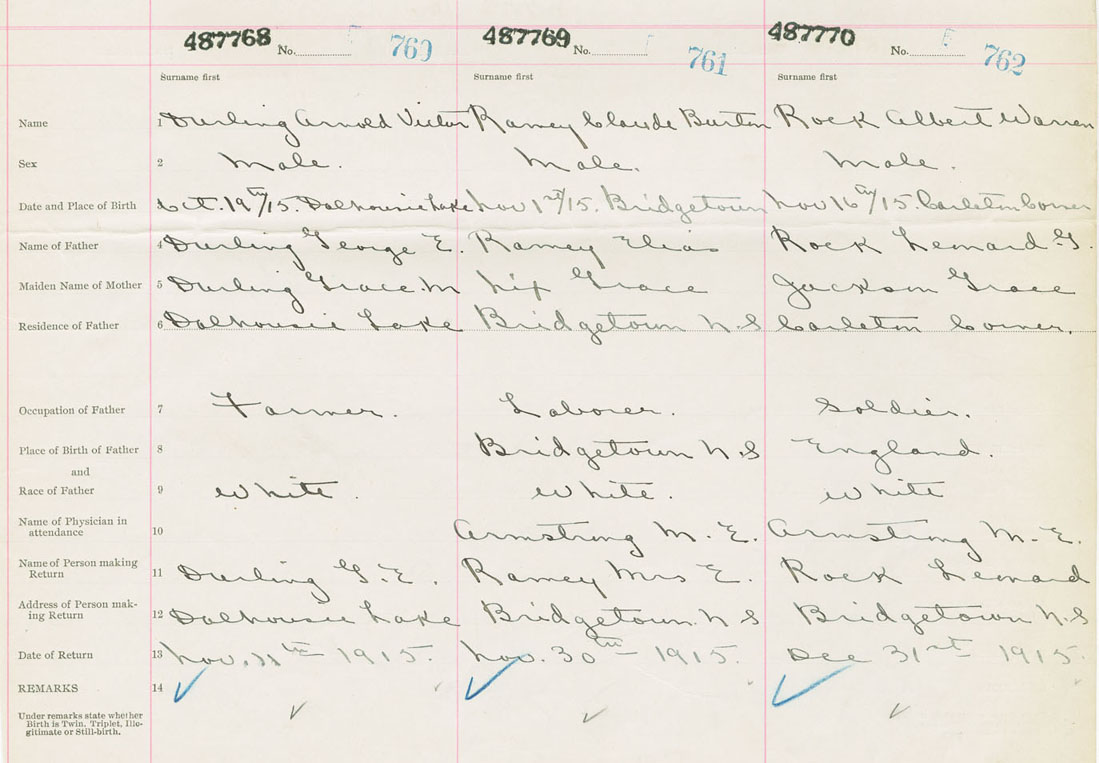 487768 No. 760 487769 No. 761 487770 No. 762
Surname first Surname first Surname first
Name 1 Durling Arnold Victor Ramey Claude Burton Rock Albert Warren
Sex 2 Male. Male. Male.
Date and Place of Birth Oct. 19th/15. Dalhousie Lake Nov 1st/15. Bridgetown Nov 16th/15. Carleton Corner
Name of Father 4 Durling George E. Ramey Elias Rock Leonard G.
Maiden Name of Mother 5 Durling Grace. M Grace Jackson Grace
Residence of Father 6 Dalhousie Lake Bridgetown N.S Carleton Corner.
Occupation of Father 7 Farmer. Laborer. Soldier.
Place of Birth of Father 8 Bridgetown N.S England.
and
Race of Father 9 White. White. White
Name of Physician in
attendance 10 Armstrong M. E. Armstrong M. E.
Name of Person making
Return 11 Durling G. E. Ramey Mrs E. Rock Leonard
Address of Person mak-
ing Return 12 Dalhousie Lake Bridgetown. N.S Bridgetown N.S
Date of Return 13 Nov. 11th 1915. Nov. 30th 1915. Dec 31st 1915.
REMARKS 14
Under remarks state whether
Birth is Twin, Triplet, Ille-
gitimate or Still-birth.